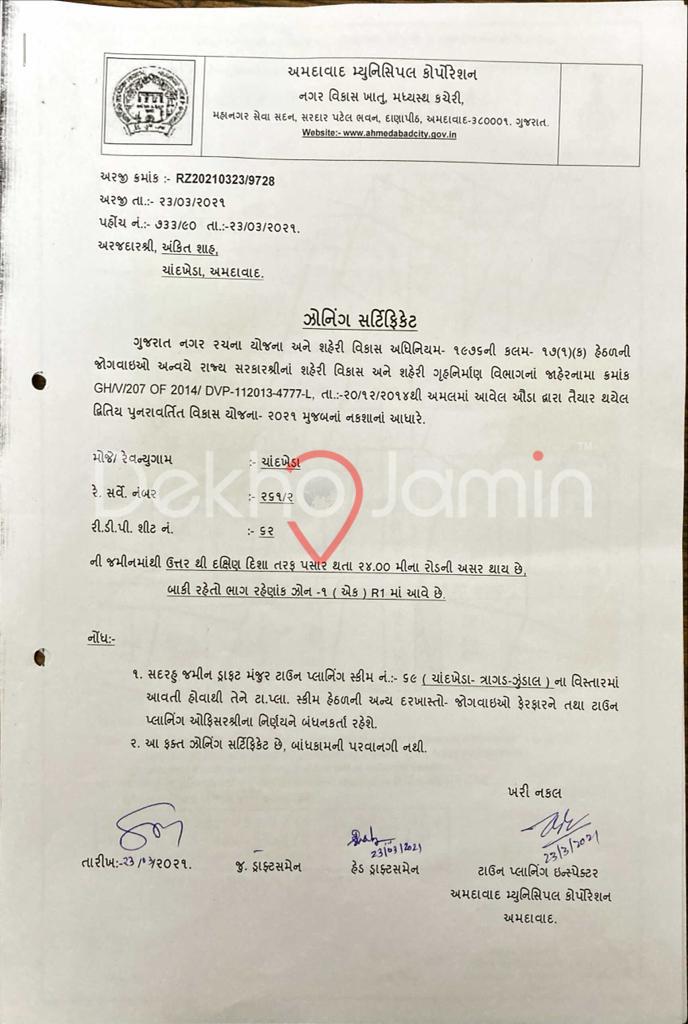 અમદાવાદ મ્યુનિસિપલ કોર્પોરેશન
નગર વિકાસ ખાતુ, મધ્યસ્થ કચેરી,
મહાનગર સેવા સદન, સરદાર પટેલ ભવન, દાણાપીઠ, અમદાવાદ-૩૮૦૦૦૧. ગુજરાત.
Website:- www.ahmedabadcity.gov.in
અરજી ક્રમાંક :- RZ20210323/9728
અરજી તા.:- ૨૩/૦૩/૨૦૨૧
પહોંચ નં.:- ૭૩૩/૯૦ તા.:-૨૩/૦૩/૨૦૨૧.
અરજદારશ્રી, અંકિત શાહ,
ચાંદખેડા, અમદાવાદ.
ઝોનિંગ સર્ટિફિકેટ
ગુજરાત નગર રચના યોજના અને શહેરી વિકાસ અધિનિયમ- ૧૯૭૬ની કલમ- ૧૭(૧)(ક) હેઠળની
જોગવાઇઓ અન્વયે રાજ્ય સરકારશ્રીનાં શહેરી વિકાસ અને શહેરી ગૃહનિર્માણ વિભાગનાં જાહેરનામા ક્રમાંક
GH/V/207 OF 2014/ DVP-112013-4777-L, તા.:-૨૦/૧૨/૨૦૧૪થી અમલમાં આવેલ ઔડા દ્વારા તૈયાર થયેલ
દ્વિતિય પુનરાવર્તિત વિકાસ યોજના- ૨૦૨૧ મુજબનાં નકશાનાં આધારે.
મોજે/ રેવન્યુગામ :- ચાંદખેડા
Dekho Jamin ™
રે. સર્વે. નંબર :- ૨૬૧/૨
રી.ડી.પી. શીટ નં. :- ૬૨
ની જમીનમાંથી ઉત્તર થી દક્ષિણ દિશા તરફ પસાર થતા ૨૪.૦૦ મીના રોડની અસર થાય છે,
બાકી રહેતો ભાગ રહેણાંક ઝોન -૧ ( એક ) R1 માં આવે છે.
નોંધ:-
૧. સદરહુ જમીન ડ્રાફટ મંજુર ટાઉન પ્લાનિંગ સ્કીમ નં.:- ૬૯ ( ચાંદખેડા- ત્રાગડ-ઝુંડાલ ) ના વિસ્તારમાં
આવતી હોવાથી તેને ટા.પ્લા. સ્કીમ હેઠળની અન્ય દરખાસ્તો- જોગવાઇઓ ફેરફારને તથા ટાઉન
પ્લાનિંગ ઓફિસરશ્રીના નિર્ણયને બંધનકર્તા રહેશે.
૨. આ ફક્ત ઝોનિંગ સર્ટિફિકેટ છે, બાંધકામની પરવાનગી નથી.
ખરી નકલ
23/03/2021
23/3/2021
તારીખ:-23/03/૨૦૨૧. જુ. ડ્રાફ્ટસમેન હેડ ડ્રાફ્ટસમેન ટાઉન પ્લાનિંગ ઇન્સ્પેક્ટર
અમદાવાદ મ્યુનિસિપલ કોર્પોરેશન
અમદાવાદ.